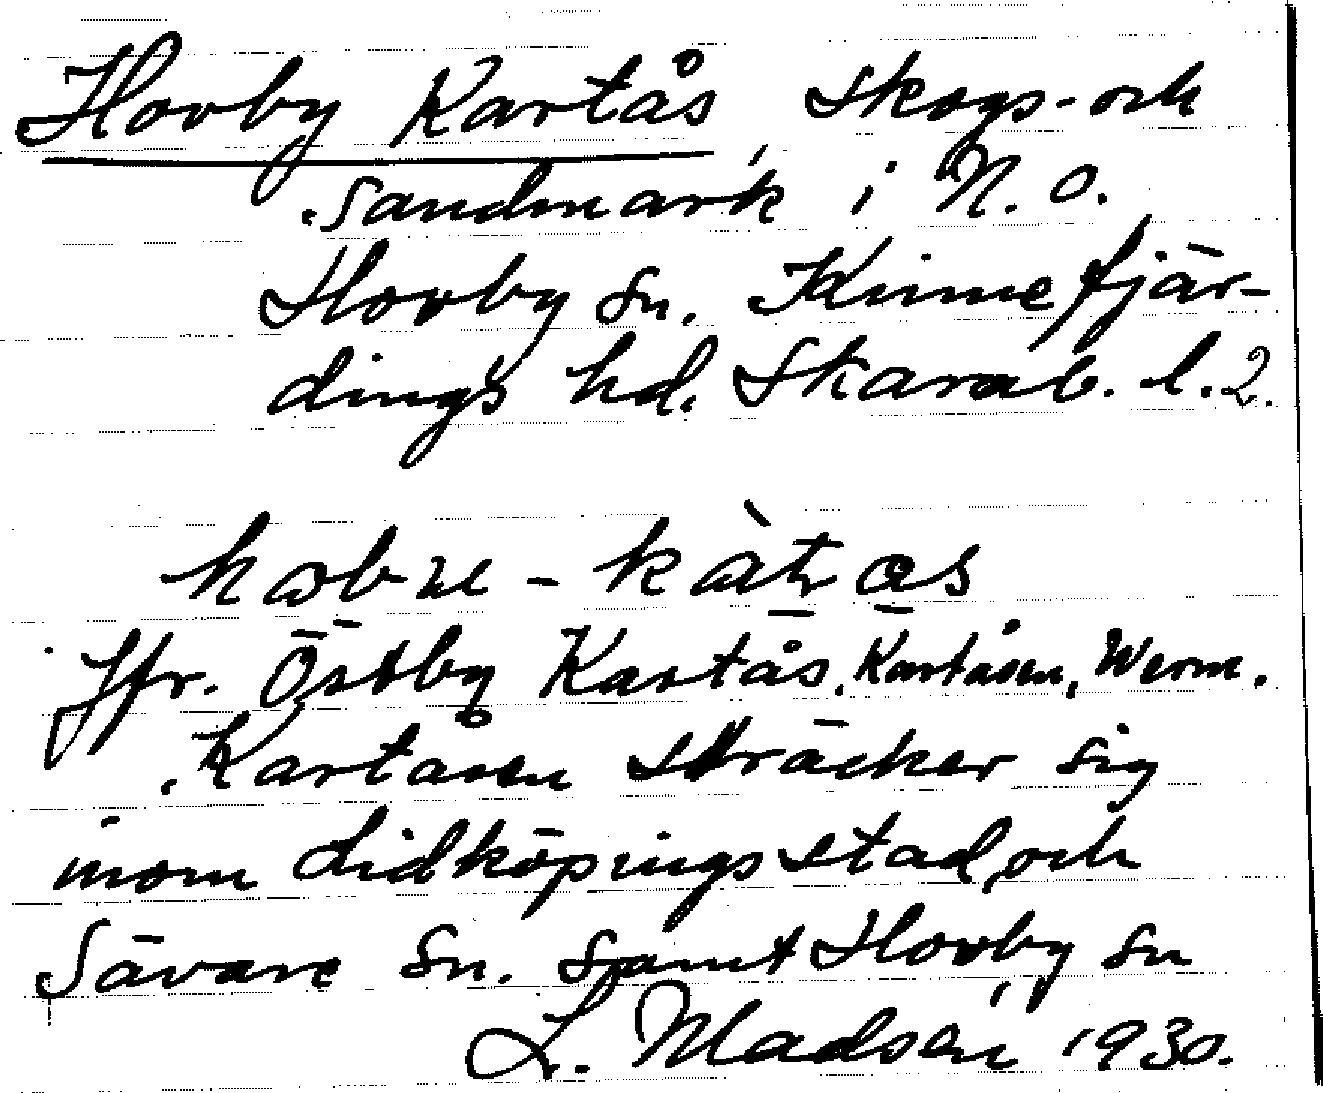 Hovby Kartås, skogs- och
sandmark i N. O.
Hovby sn. Kinnefjär-
dings hd. Skarab. l. 2.
Jfr. Östby Kartås, Kartåsen, Werm.
Kartåsen sträcker sig
inom Lidköpings stad, och
Sävare sn. samt Hovby sn
L. Madsén 1930.